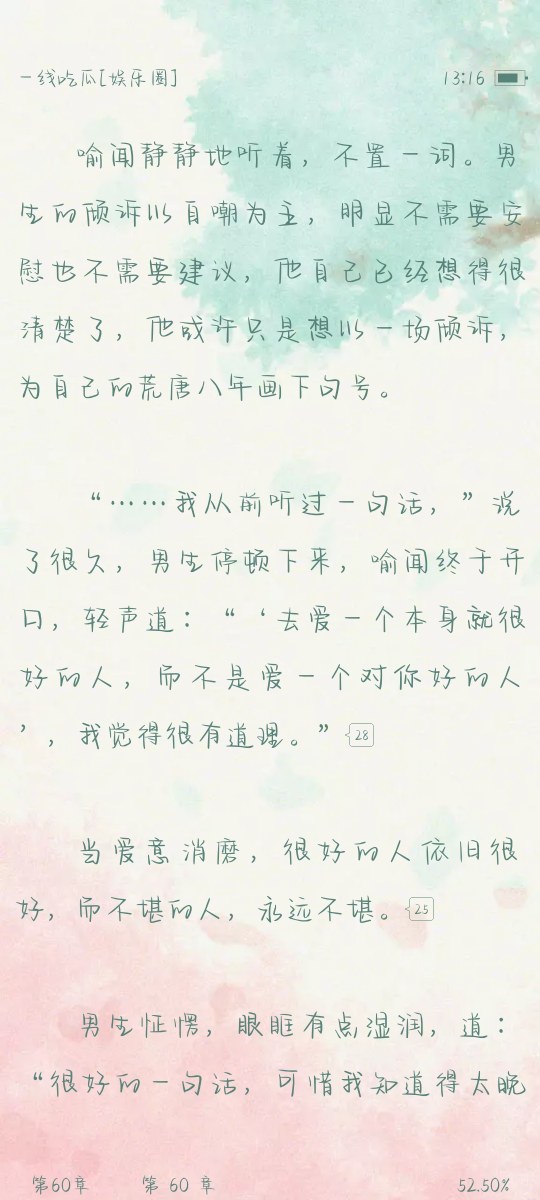 一线吃瓜[娱乐圈]
13:16
喻闻静静地听着，不置一词。男
生的倾诉以自嘲为主，明显不需要安
慰也不需要建议，他自己已经想得很
清楚了，他或许只是想以一场倾诉，
为自己的荒唐八年画下句号。
“……我从前听过一句话，”说
了很久，男生停顿下来，喻闻终于开
口，轻声道：“‘去爱一个本身就很
好的人，而不是爱一个对你好的人
’，我觉得很有道理。” 28
当爱意消磨，很好的人依旧很
好，而不堪的人，永远不堪。 25
男生怔愣，眼眶有点湿润，道：
“很好的一句话，可惜我知道得太晚
第60章 第 60 章 52.50%